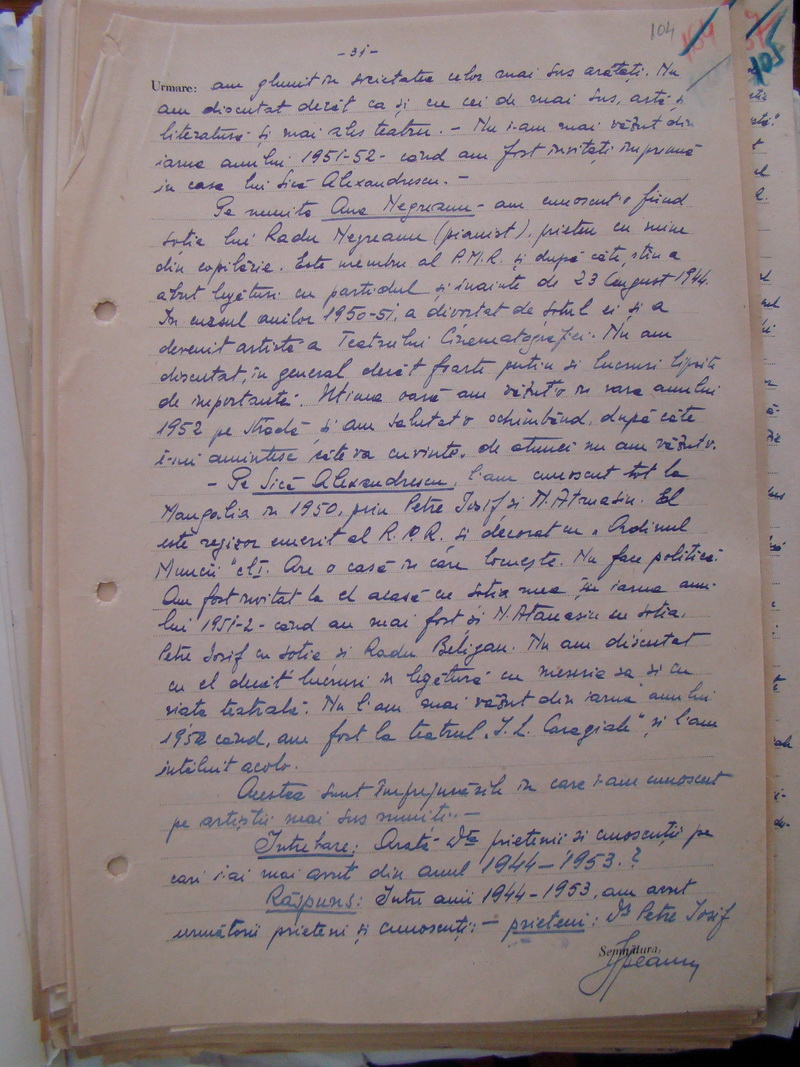 104
104
105
- 31 -
Urmare: am glumit în societatea celor mai sus arătați. Nu
am discutat decât ca și cu cei de mai sus, artă și
literatură și mai ales teatru. - Nu i-am mai văzut din
iarna anului 1951-52 - când am fost invitați împreună
în casa lui Sică Alexandrescu. -
Pe numita Ana Negreanu - am cunoscut-o fiind
soția lui Radu Negreanu (pianist), prieten cu mine
din copilărie. Este membru al P.M.R. și după câte, știu a
avut legături cu partidul și înainte de 23 August 1944.
În cursul anilor 1950-51, a divorțat de soțul ei și a
devenit artistă a Teatrului Cinematografiei. Nu am
discutat, în general decât foarte puțin și lucruri lipsite
de importanță. Ultima oară am văzut-o în vara anului
1952 pe stradă și am salutat-o schimbând, după câte
î-mi amintesc câteva cuvinte, de atunci nu am văzut-o.
- Pe Sică Alexandrescu, l-am cunoscut tot la
Mangalia în 1950, prin Petre Iosif și N. Atanasiu. El
este regizor emerit al R.P.R. și decorat cu „Ordinul
Muncii" cl I. Are o casă în care locuește. Nu face politică.
Am fost invitat la el acasă cu soția mea în iarna anu-
lui 1951-2 - când au mai fost și N. Atanasiu cu soția,
Petre Iosif cu soția și Radu Beligan. Nu am discutat
cu el decât lucruri în legătură cu meseria sa și cu
viața teatrală. Nu l-am mai văzut din iarna anului
1952 când, am fost la teatrul „I. L. Caragiale", și l-am
întâlnit acolo.
Acestea sunt împrejurările în care i-am cunoscut
pe artiștii mai sus numiți. -
Întrebare: Arată Dta prietenii și cunoscuții pe
cari i-ai mai avut din anul 1944 - 1953.?
Răspuns: Între anii 1944 - 1953, am avut
următorii prieteni și cunoscuți: - prieteni: Petre Iosif
Semnătura,